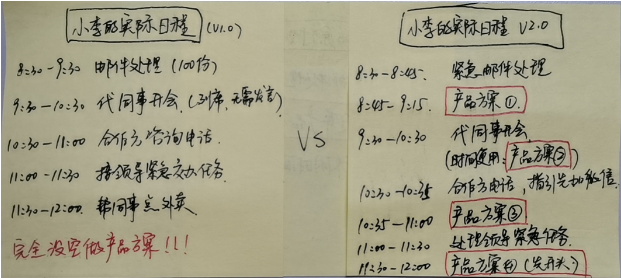 小李的实际日程 (V1.0)
8:30-9:30 邮件处理 (100份)
9:30-10:30 代同事开会.(列席,无需发言)
10:30-11:00 合作方咨询电话.
11:00-11:30 接领导紧急交办任务
11:30-12:00. 帮同事点外卖
完全没空做产品方案!!!
VS
小李的实际日程 V2.0
8:30-8:45. 紧急邮件处理
8:45-9:15. 产品方案①.
9:30-10:30 代同事开会
(时间使用:产品方案②)
10:30-10:35 合作方电话,指引先加微信.
10:35-11:00 产品方案③
11:00-11:30 处理领导紧急任务.
11:30-12:00 产品方案④(先开头)